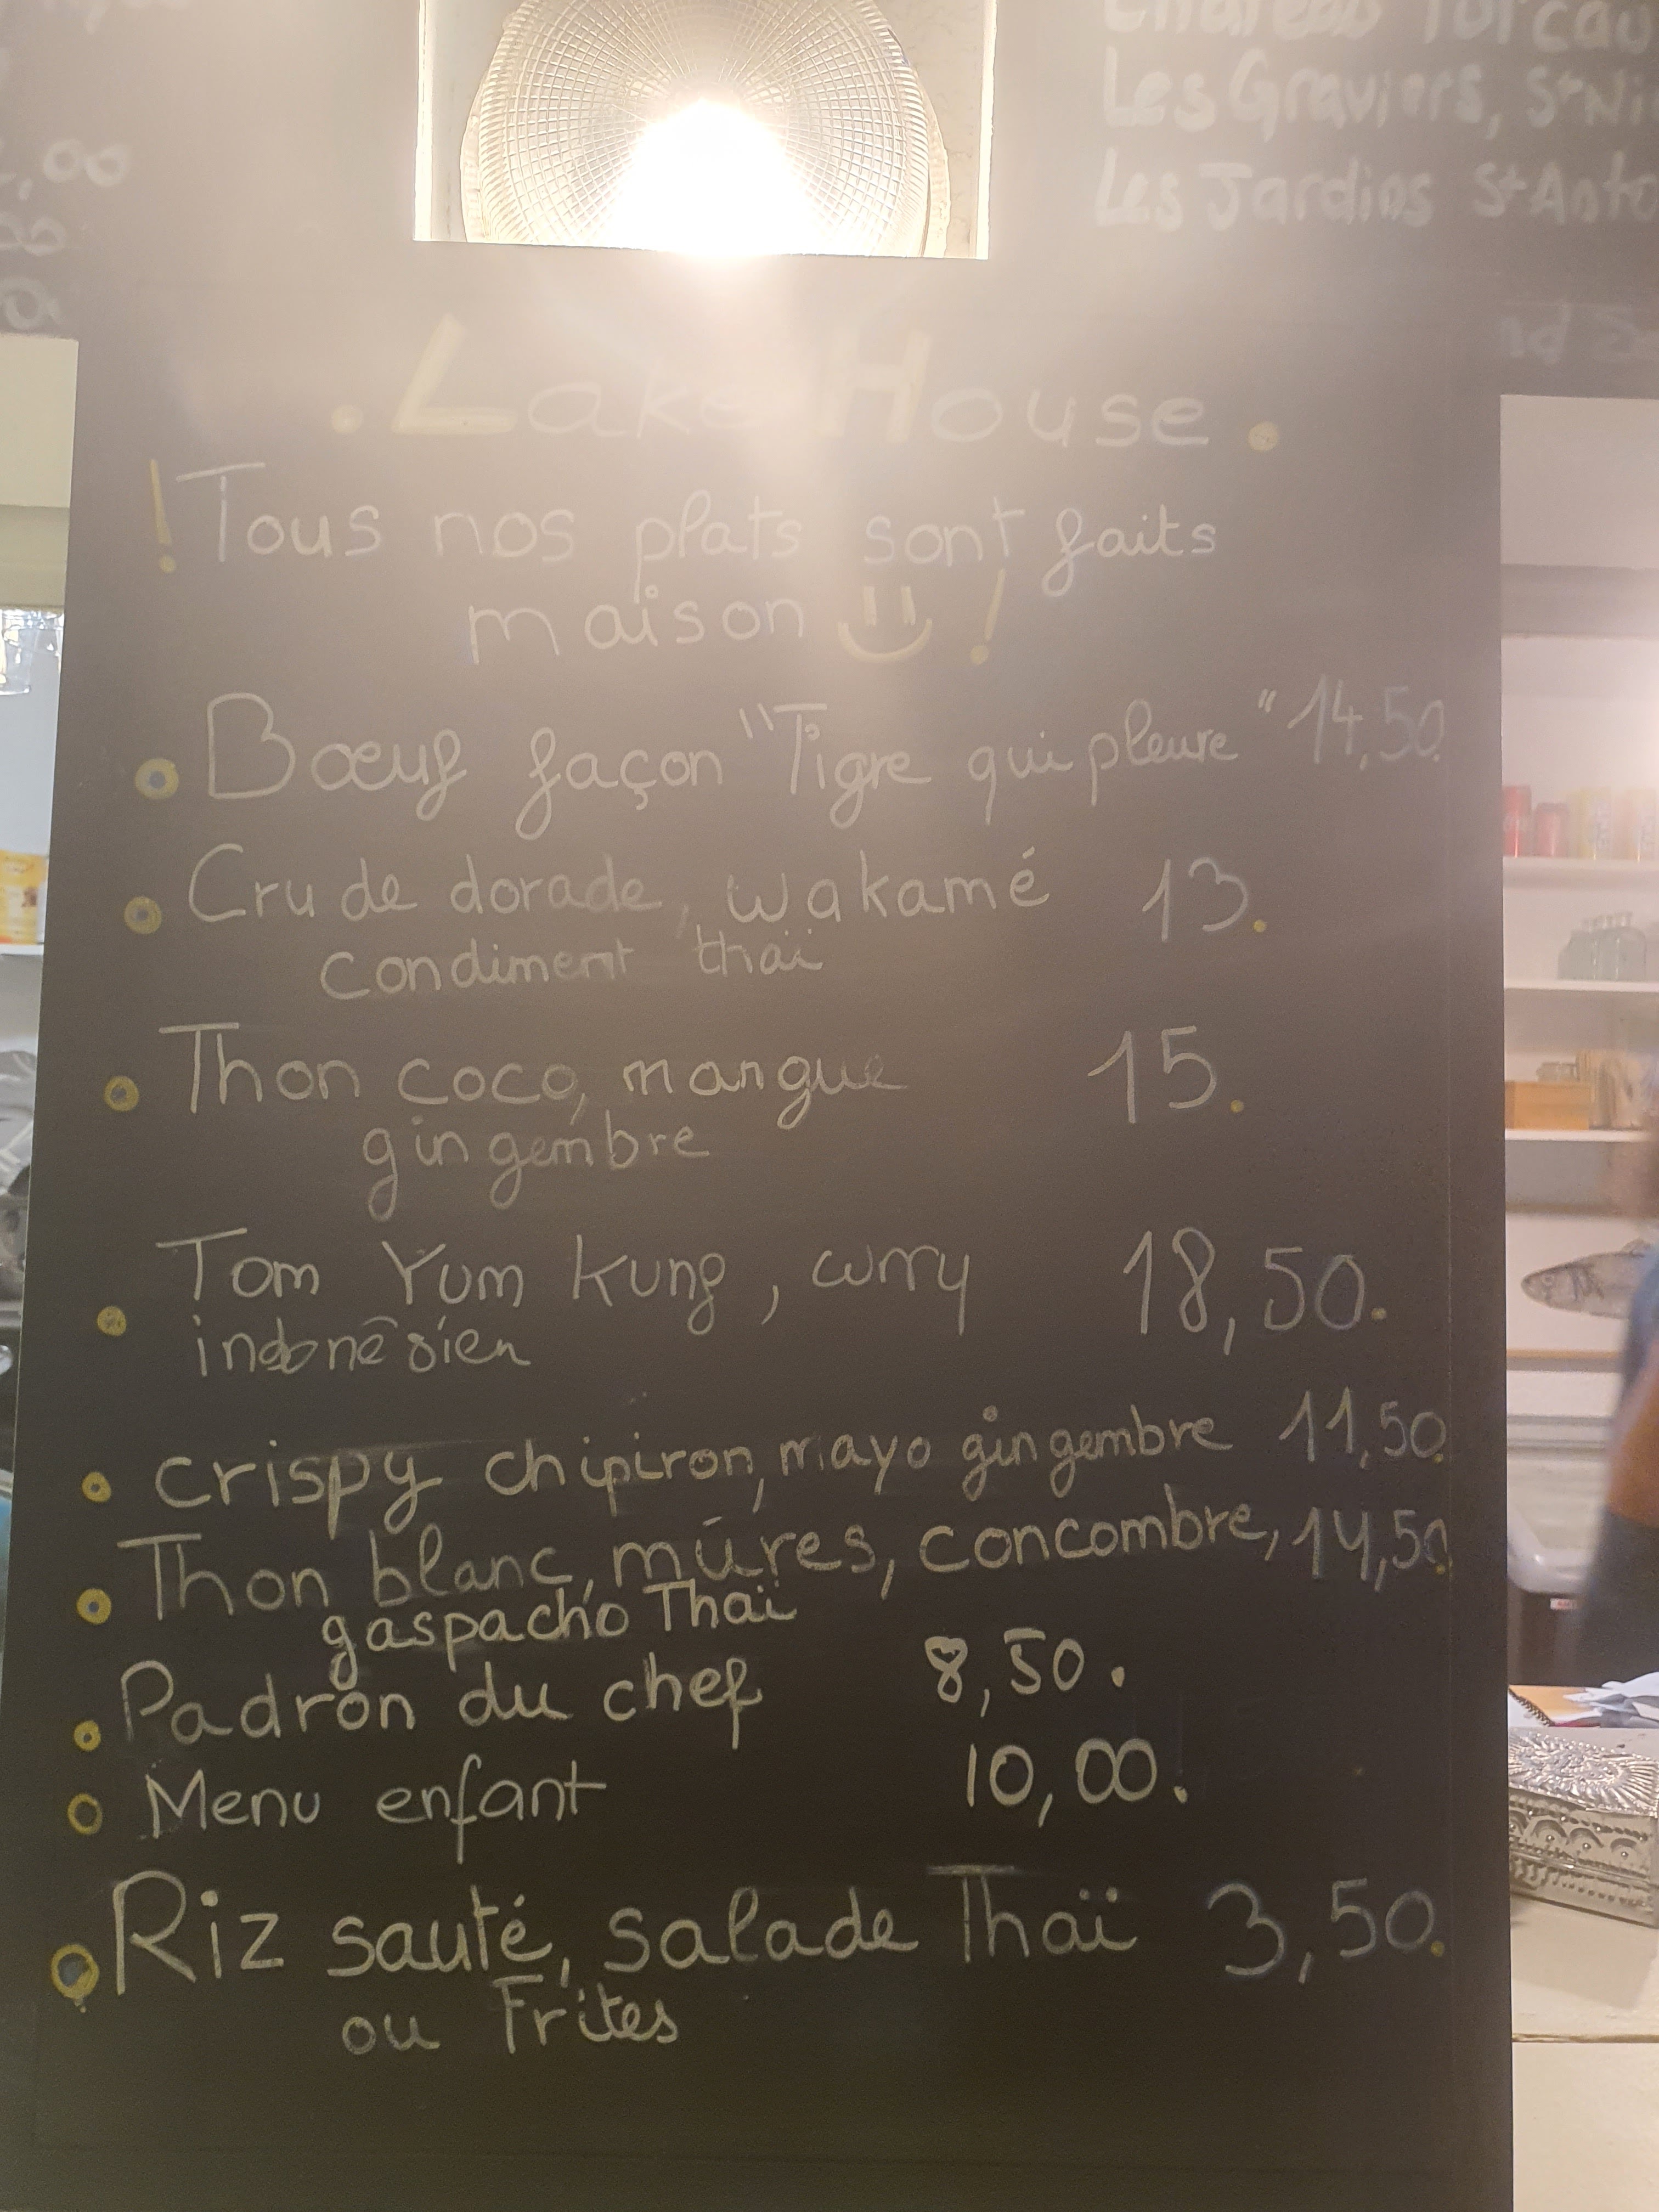 Les Graviers, St Ni
Les Jardins St Anto
,00
. Lake House .
! Tous nos plats sont faits
maison !
Bœuf façon "Tigre qui pleure" 14,50.
Cru de dorade, wakamé 13.
condiment thaï
Thon coco, mangue 15.
gingembre
Tom Yum Kung, curry 18,50.
indonésien
crispy chipiron, mayo gingembre 11,50.
Thon blanc, mûres, concombre, 14,50
gaspacho Thaï
Padrón du chef 8,50.
Menu enfant 10,00.
Riz sauté, salade Thaï 3,50.
ou Frites